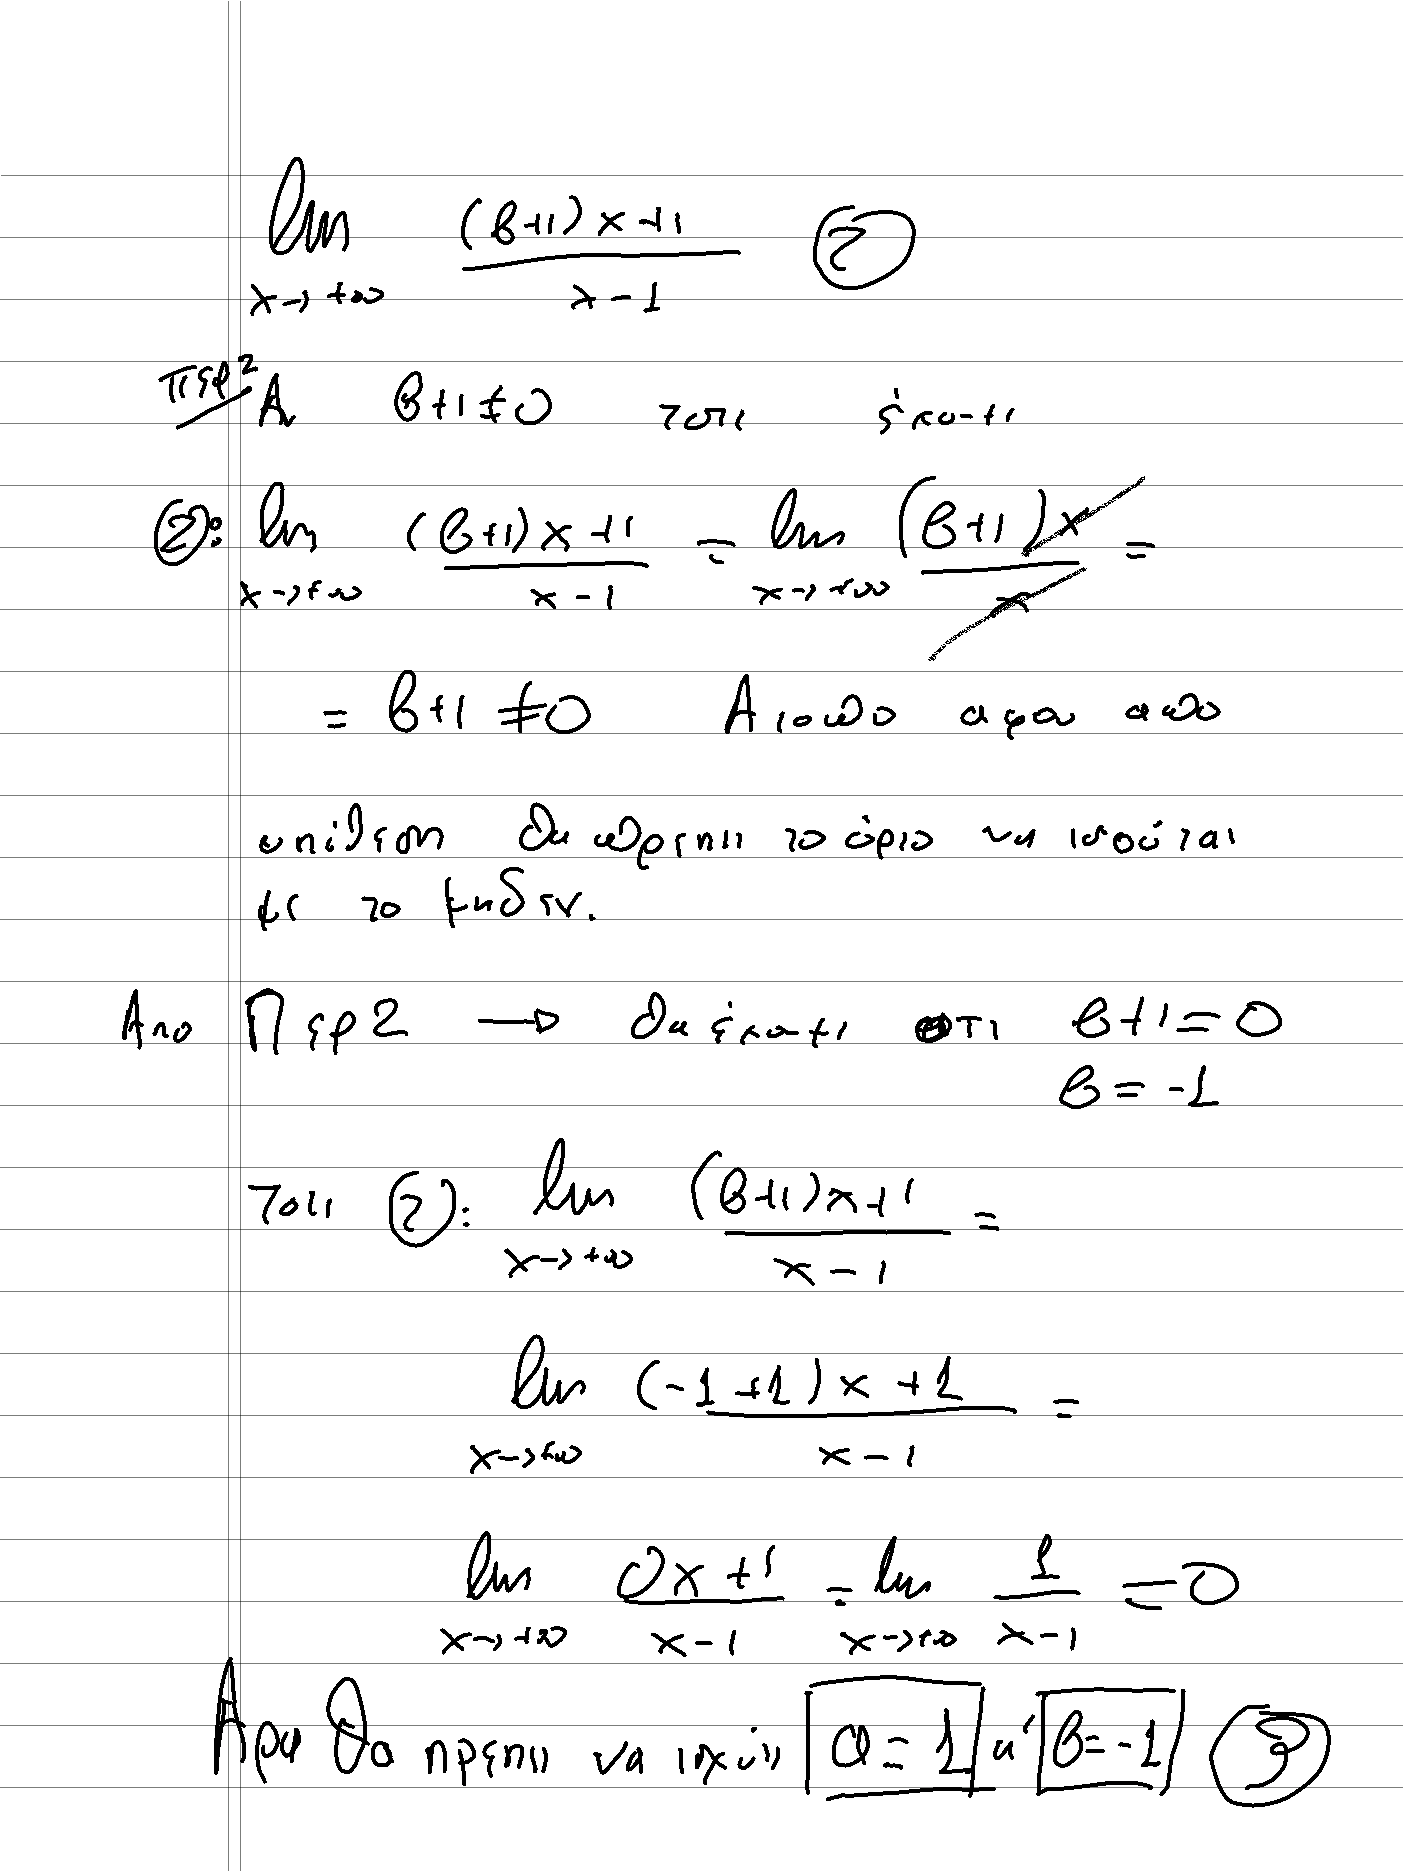 lim (β+1)x+1 / x-1 ②
x→+∞
περ2 Αν β+1≠0 τοτε έχουμε
②: lim (β+1)x+1 / x-1 = lim (β+1)x / x =
x→+∞ x→+∞
= β+1 ≠0 Ατοπο αφου απο
υπόθεση θα πρεπει το όριο να ισούται
με το μηδεν.
Απο Περ2 → θα έχουμε οτι β+1=0
β=-1
τοτε ②: lim (β+1)x+1 / x-1 =
x→+∞
lim (-1+1)x+1 / x-1 =
x→+∞
lim 0x+1 / x-1 = lim 1 / x-1 =0
x→+∞ x→+∞
Αρα θα πρεπει να ισχύει α=1 κ' β=-1 ③